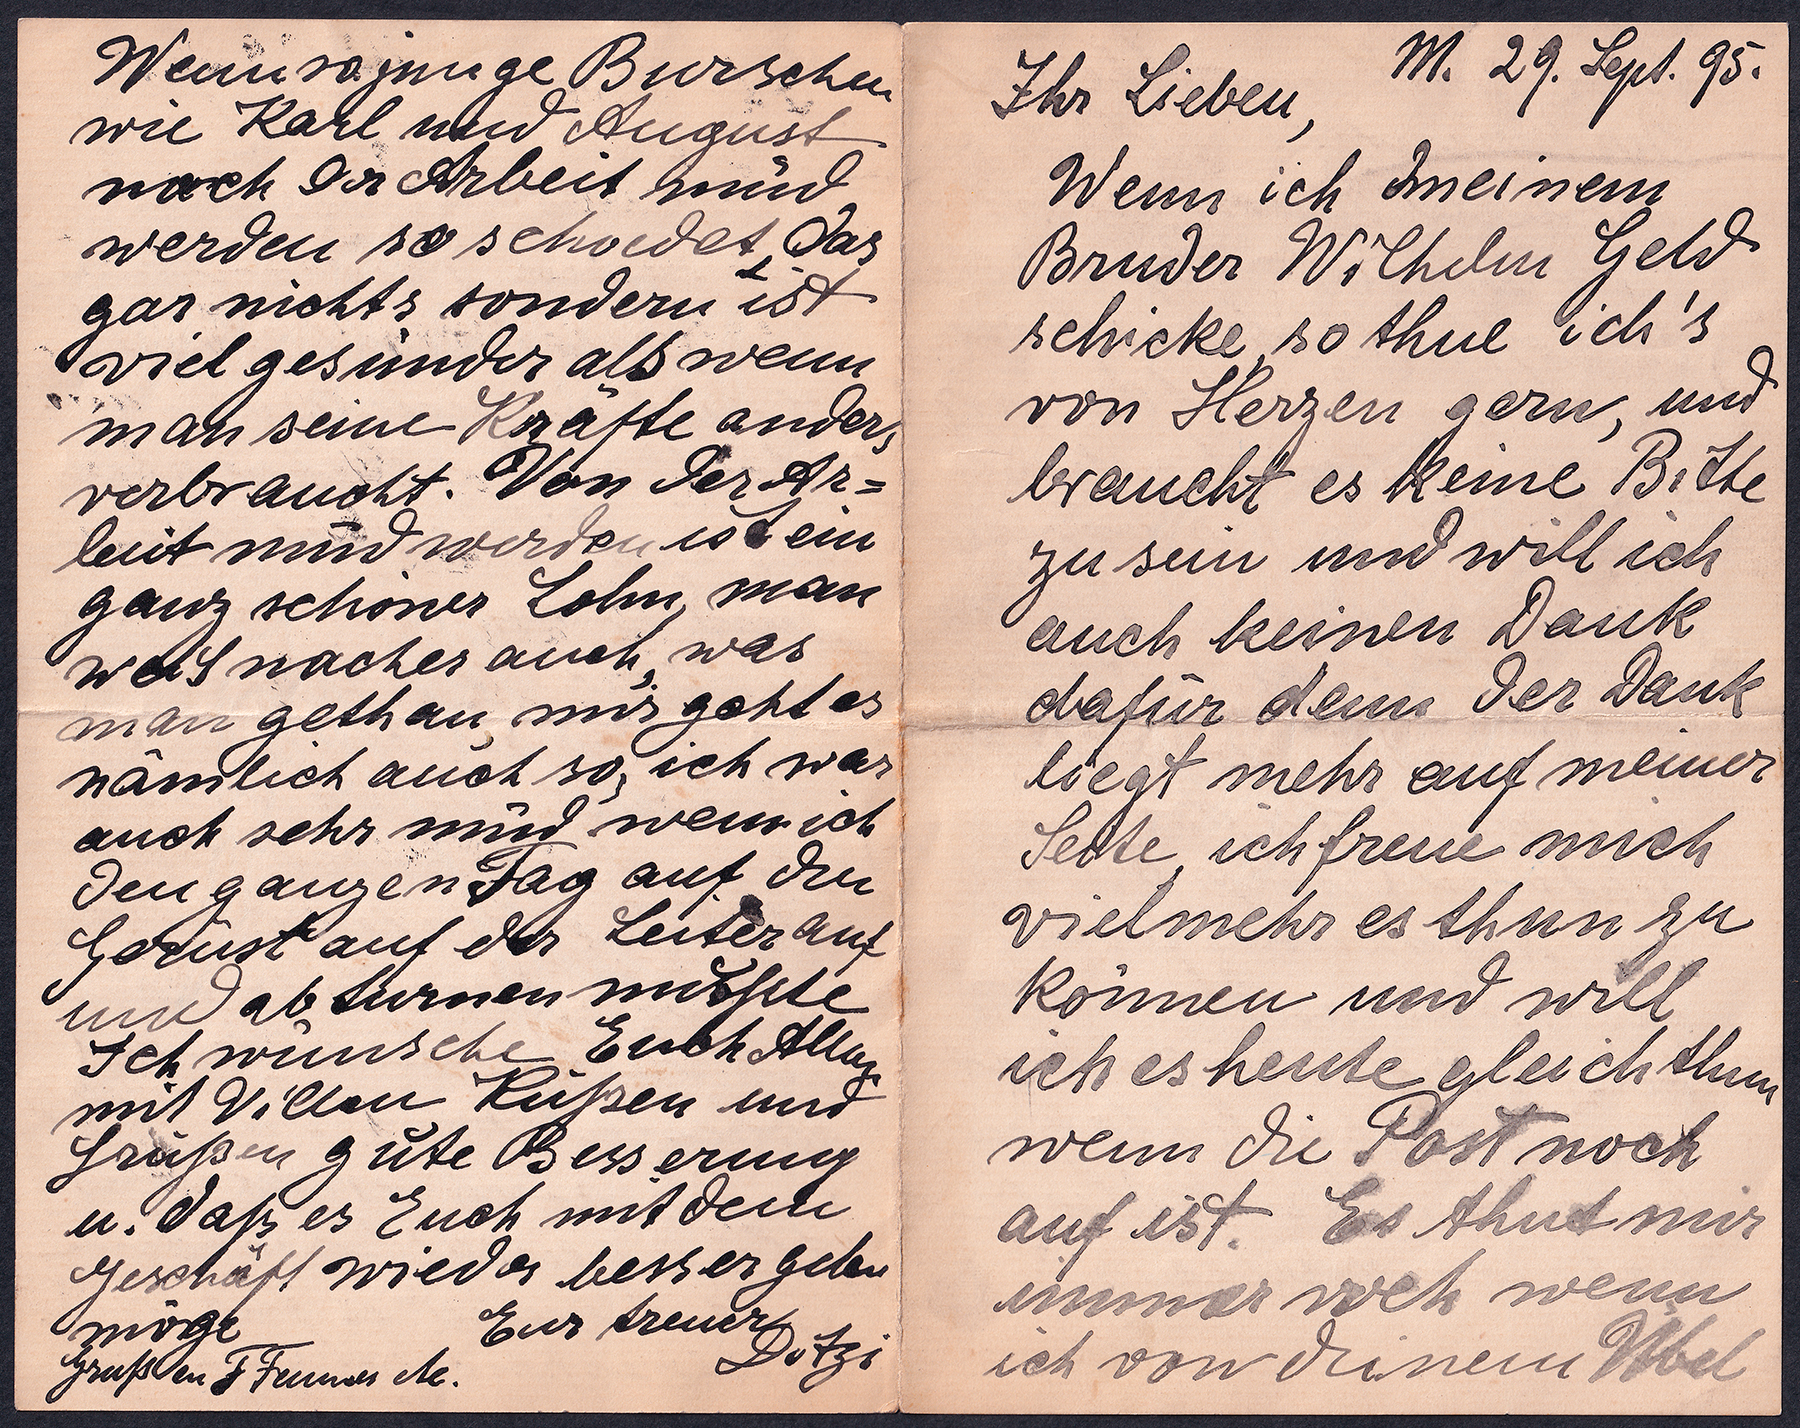 M. 29. Sept. 95.
Ihr Lieben,
Wenn ich meinem
Bruder Wilhelm Geld
schicke, so thue ich's
von Herzen gern, und
braucht es keine Bitte
zu sein und will ich
auch keinen Dank
dafür denn der Dank
liegt mehr auf meiner
Seite, ich freue mich
vielmehr es thun zu
können und will
ich es heute gleich thun
wenn die Post noch
auf ist. Es thut mir
immer noch wenn
ich von deinem Übel
Wenn so junge Burschen
wie Karl und August
nach der Arbeit müd
werden so schadet das
gar nichts sondern ist
viel gesünder als wenn
man seine Kräfte anders
verbraucht. Von der Ar=
beit müd werden ist ein
ganz schöner Lohn, man
weis nacher auch, was
man gethan, mir geht es
nämlich auch so, ich war
auch sehr müd wenn ich
den ganzen Tag auf den
Gerüst auf der Leiter auf
und ab turnen mußte
Ich wünsche Euch Allen
mit Villen Küßen und
Grüßen gute Besserung
u. daß es Euch mit dem
Geschäft wieder besser gehen
möge
Eur treuer
Dotzi
Grüß en F